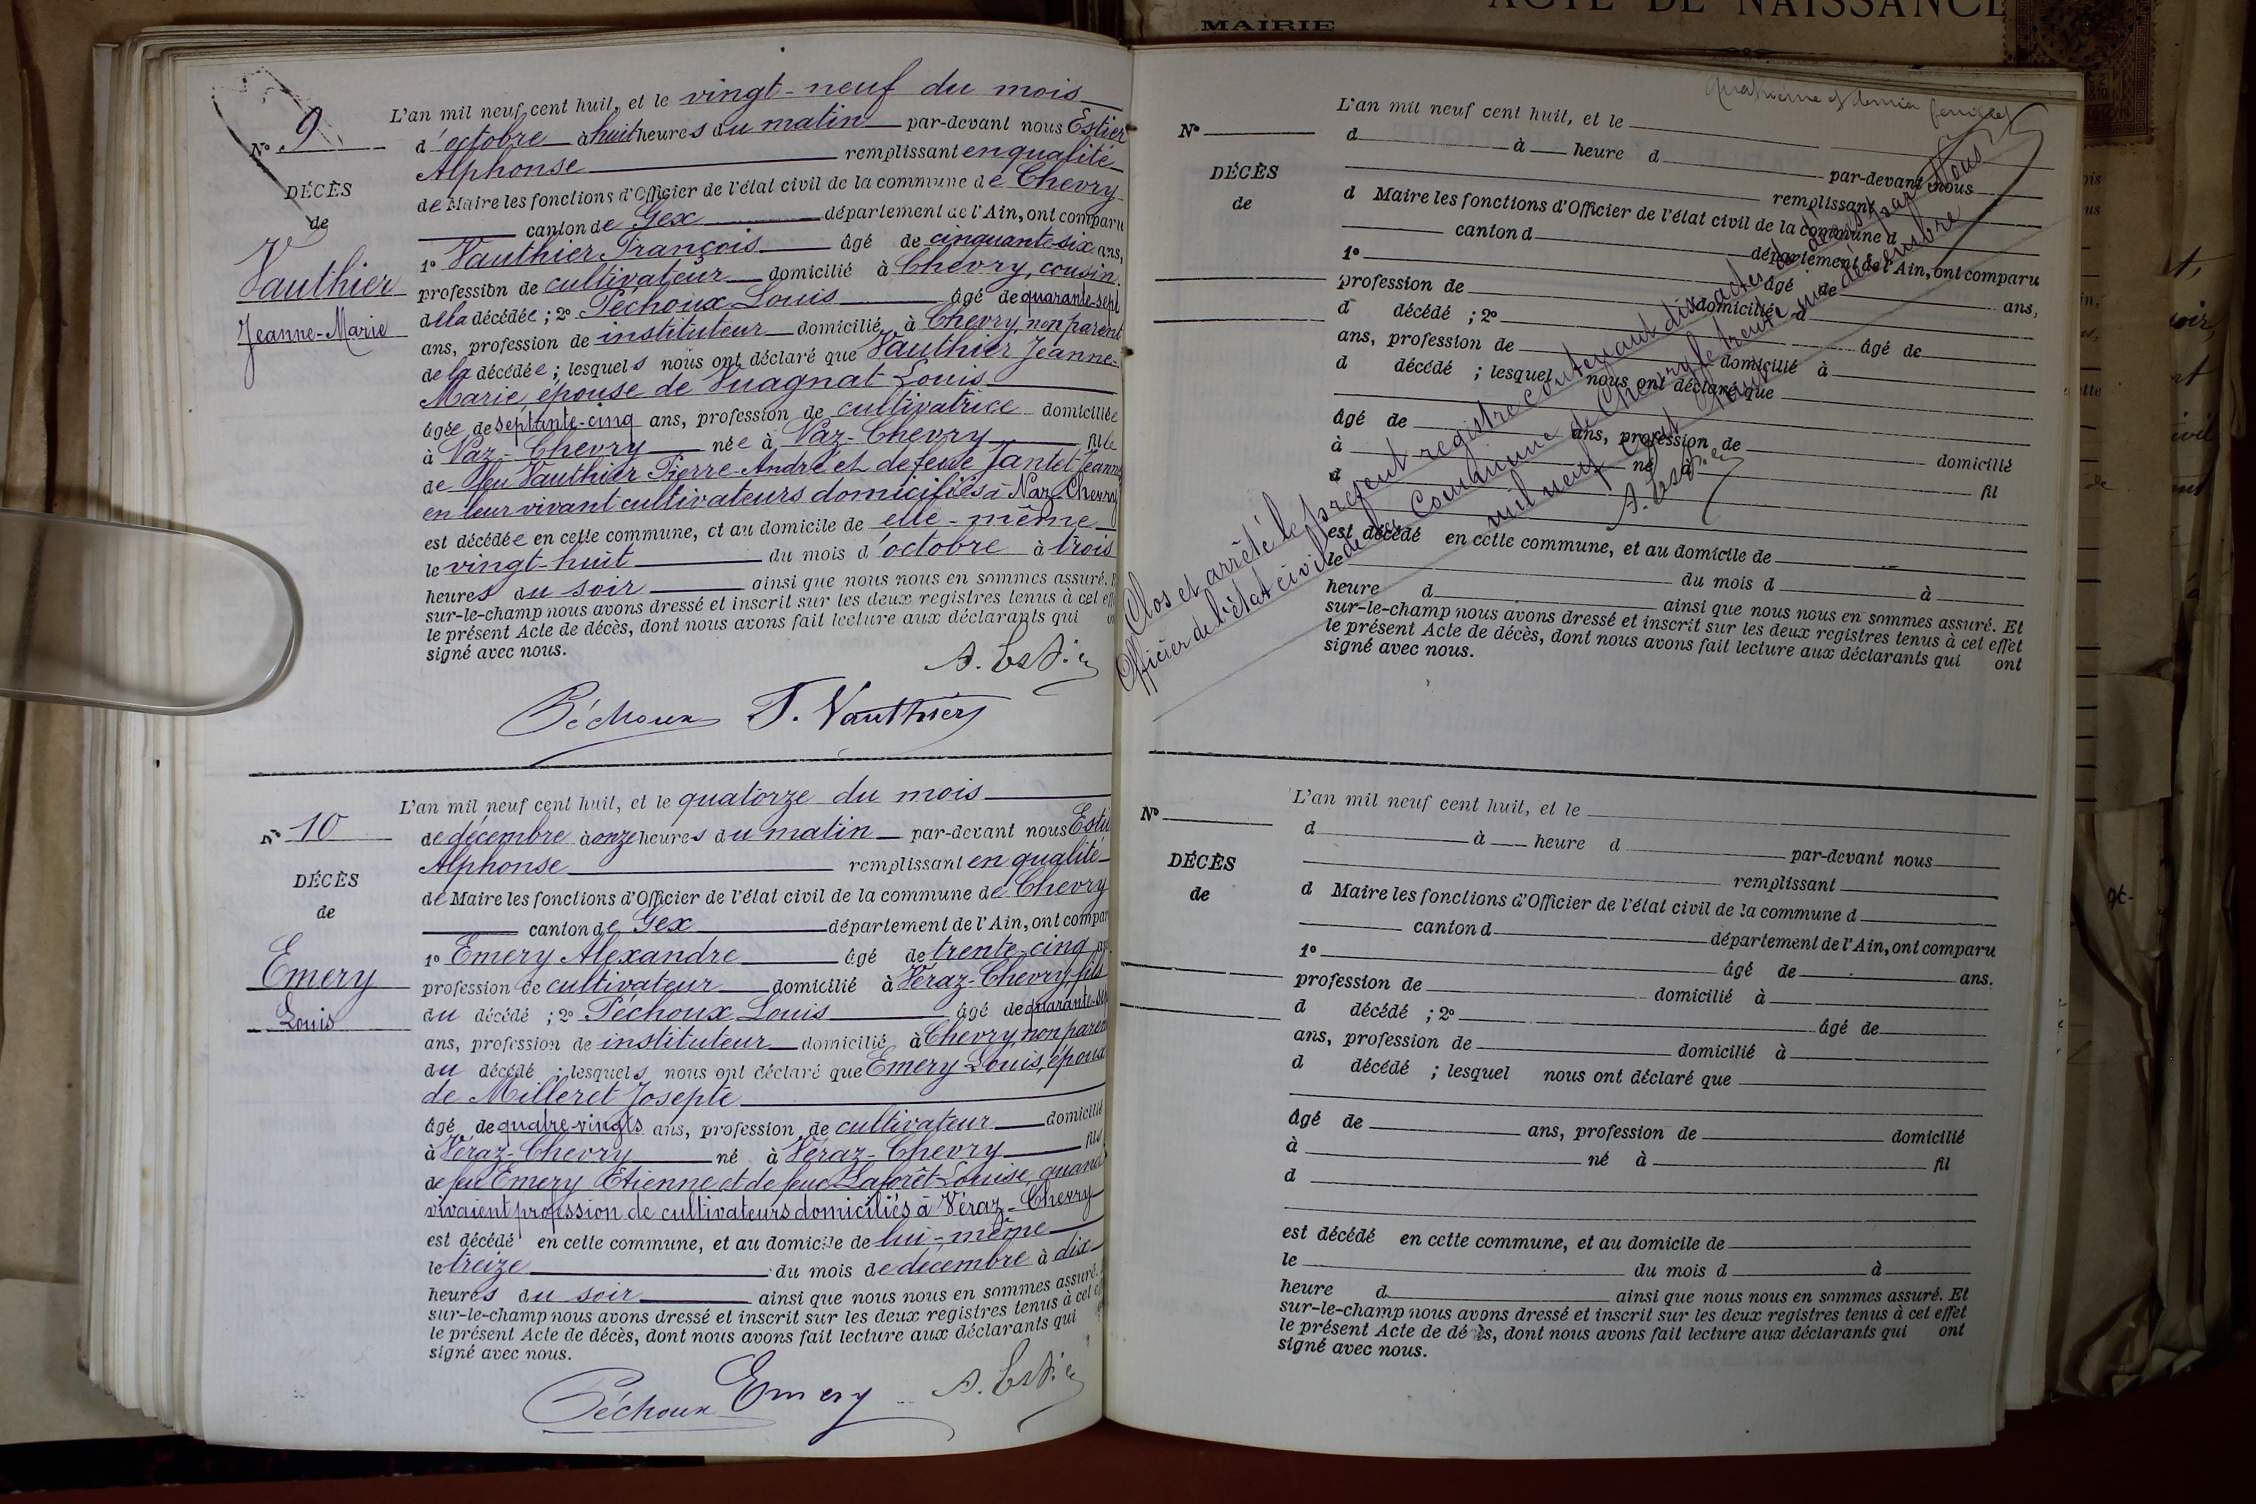 MAIRIE
ACTE DE NAISSANCE
L'an mil neuf cent huit, et le vingt-neuf du mois
N° 9
d'octobre à huit heures du matin par-devant nous Estier
Alphonse remplissant en qualité
DÉCÈS
de Maire les fonctions d'Officier de l'état civil de la commune de Chevry
de
canton de Gex département de l'Ain, ont comparu
1° Vauthier François âgé de cinquante-six ans,
Vauthier
profession de cultivateur domicilié à Chevry, cousin
Jeanne-Marie
de la décédée ; 2° Péchoux Louis âgé de quarante-sept
ans, profession de instituteur domicilié à Chevry, non parent
de la décédée ; lesquels nous ont déclaré que Vauthier Jeanne-
Marie, épouse de Vuagnat Louis
âgée de septante-cinq ans, profession de cultivatrice domiciliée
à Naz-Chevry née à Naz-Chevry fille
de feu Vauthier Pierre-André et de feue Jantet Jeanne
en leur vivant cultivateurs domiciliés à Naz-Chevry
est décédée en cette commune, et au domicile de elle-même
le vingt-huit du mois d'octobre à trois
heures du soir ainsi que nous nous en sommes assuré.
sur-le-champ nous avons dressé et inscrit sur les deux registres tenus à cet eff
le présent Acte de décès, dont nous avons fait lecture aux déclarants qui
signé avec nous.
A. Estier
Péchoux F. Vauthier
L'an mil neuf cent huit, et le quatorze du mois
N° 10
de décembre à onze heures du matin par-devant nous Estier
Alphonse remplissant en qualité
DÉCÈS
de Maire les fonctions d'Officier de l'état civil de la commune de Chevry
de
canton de Gex département de l'Ain, ont compar
1° Emery Alexandre âgé de trente-cinq ans
Emery
profession de cultivateur domicilié à Véraz-Chevry, fils
Louis
du décédé ; 2° Péchoux Louis âgé de quarante-sep
ans, profession de instituteur domicilié à Chevry non parent
du décédé ; lesquels nous ont déclaré que Emery Louis, époux
de Milleret Josepte
âgé de quatre-vingts ans, profession de cultivateur domicilié
à Véraz-Chevry né à Véraz-Chevry fils
de feu Emery Etienne et de feue Laforêt Louise, quand
vivaient profession de cultivateurs domiciliés à Véraz-Chevry
est décédé en cette commune, et au domicile de lui-même
le treize du mois de décembre à dix
heures du soir ainsi que nous nous en sommes assuré.
sur-le-champ nous avons dressé et inscrit sur les deux registres tenus à cet
le présent Acte de décès, dont nous avons fait lecture aux déclarants qui
signé avec nous.
Péchoux Emery A. Estier
Quatrième et dernier feuillet
L'an mil neuf cent huit, et le
N°
d à heure d
par-devant nous
DÉCÈS
remplissant
de
d Maire les fonctions d'Officier de l'état civil de la commune d
canton d département de l'Ain, ont comparu
1° âgé de ans,
profession de domicilié à
d décédé ; 2° âgé de
ans, profession de domicilié à
d décédé ; lesquel nous ont déclaré que
âgé de ans, profession de domicilié
à né à fil
d
est décédé en cette commune, et au domicile de
le du mois d à
heure d ainsi que nous nous en sommes assuré. Et
sur-le-champ nous avons dressé et inscrit sur les deux registres tenus à cet effet
le présent Acte de décès, dont nous avons fait lecture aux déclarants qui ont
signé avec nous.
Clos et arrêté le présent registre contenant dix actes de décès par Nous
Officier de l'état civil de la Commune de Chevry le trente un décembre
mil neuf cent huit
A. Estier
L'an mil neuf cent huit, et le
N°
d à heure d
par-devant nous
DÉCÈS
remplissant
de
d Maire les fonctions d'Officier de l'état civil de la commune d
canton d département de l'Ain, ont comparu
1° âgé de ans.
profession de domicilié à
d décédé ; 2° âgé de
ans, profession de domicilié à
d décédé ; lesquel nous ont déclaré que
âgé de ans, profession de domicilié
à né à fil
d
est décédé en cette commune, et au domicile de
le du mois d à
heure d ainsi que nous nous en sommes assuré. Et
sur-le-champ nous avons dressé et inscrit sur les deux registres tenus à cet effet
le présent Acte de décès, dont nous avons fait lecture aux déclarants qui ont
signé avec nous.